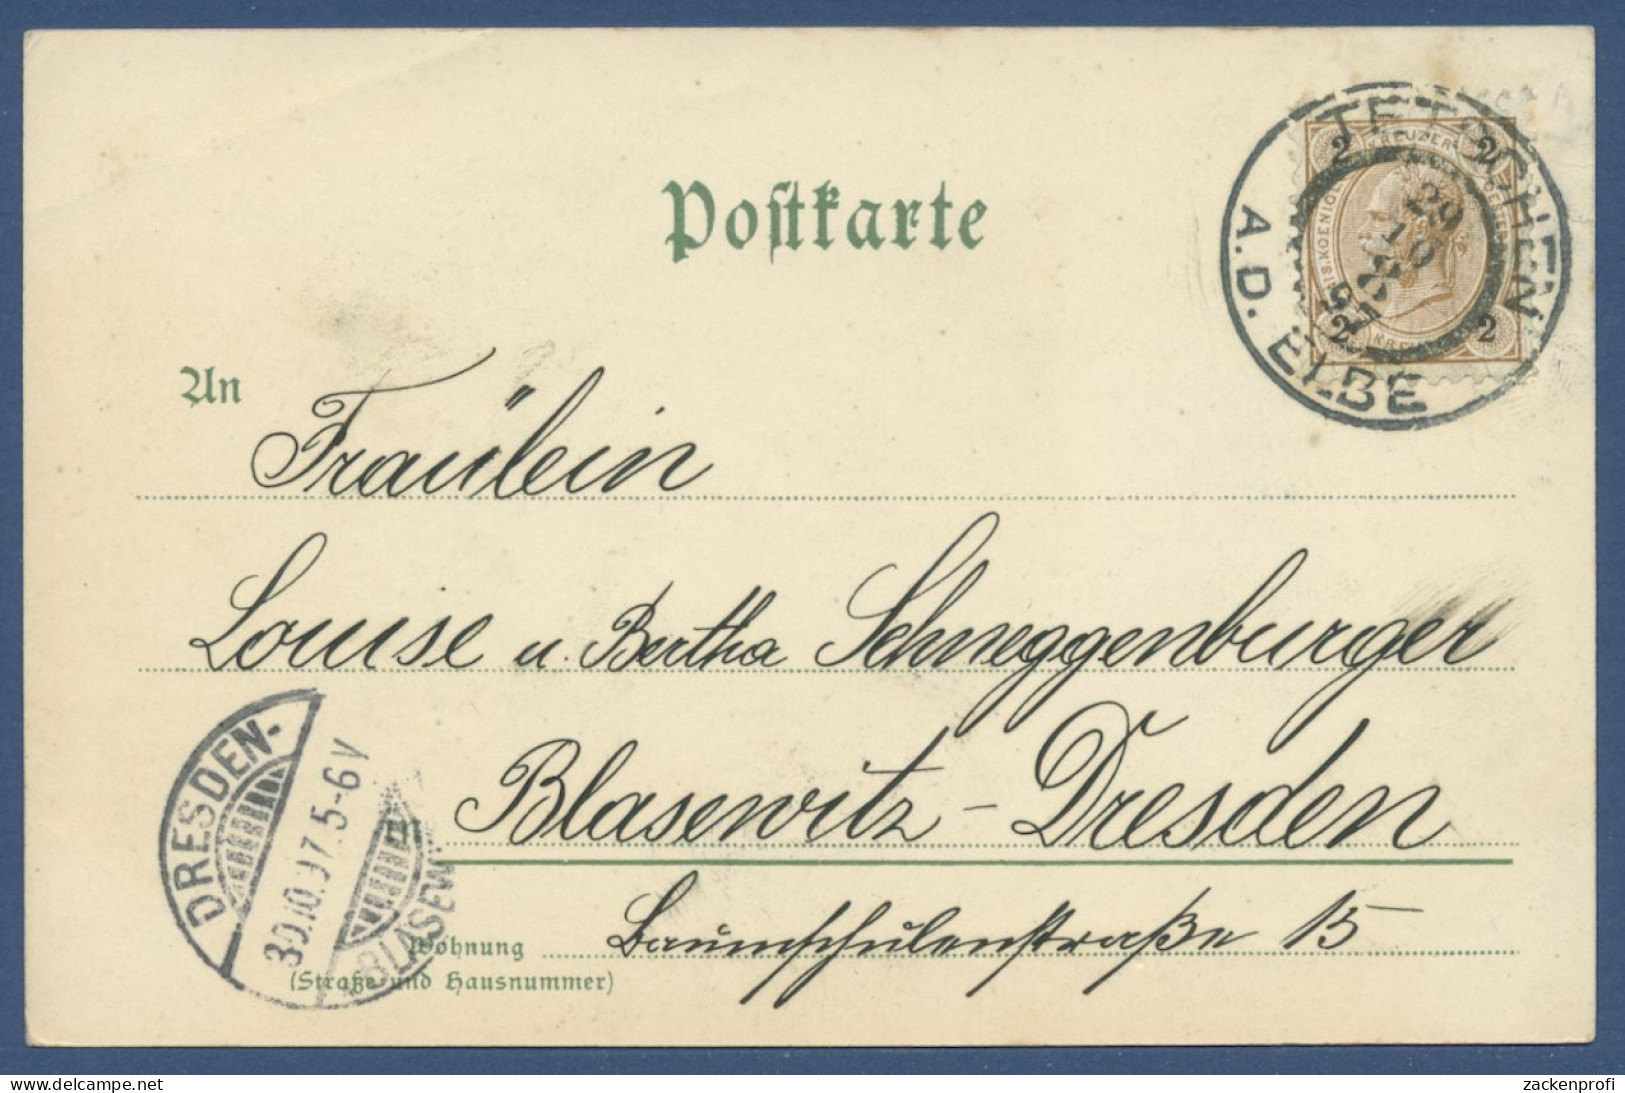 Postkarte
TETSCHEN
A.D. ELBE
29
10
8
97
KREUZER
2 2
2 2
An
Fräulein
Louise u. Bertha Schneggenburger
Blasewitz – Dresden
DRESDEN-
30.10.97.5-6V
BLASEW
Wohnung Baumschulenstraße 15
(Straße und Hausnummer)
delcampe.net
zackenprofi